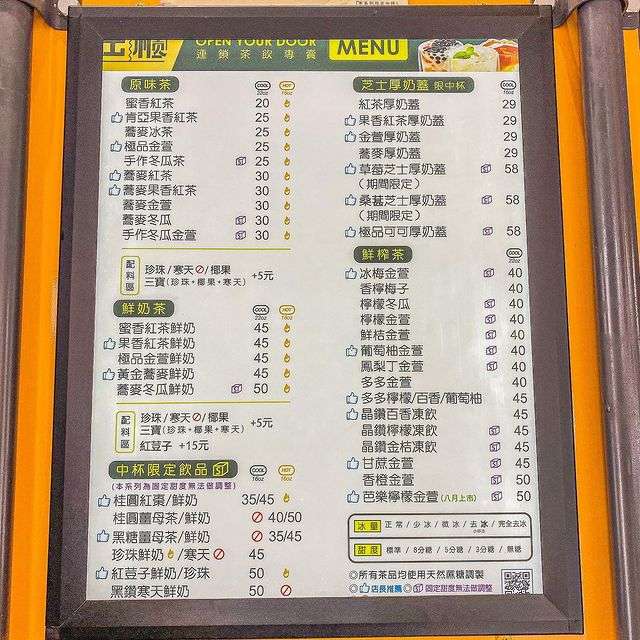 OPEN YOUR DOOR
連鎖茶飲專賣
MENU
原味茶 COOL 22oz HOT 16oz
蜜香紅茶 20
肯亞果香紅茶 25
蕎麥冰茶 25
極品金萱 25
手作冬瓜茶 25
蕎麥紅茶 30
蕎麥果香紅茶 30
蕎麥金萱 30
蕎麥冬瓜 30
手作冬瓜金萱 30
配料區 珍珠/寒天/椰果
三寶(珍珠+椰果+寒天) +5元
鮮奶茶 COOL 22oz HOT 16oz
蜜香紅茶鮮奶 45
果香紅茶鮮奶 45
極品金萱鮮奶 45
黃金蕎麥鮮奶 45
蕎麥冬瓜鮮奶 50
配料區 珍珠/寒天/椰果
三寶(珍珠+椰果+寒天) +5元
紅荳子 +15元
中杯限定飲品 COOL 16oz HOT 16oz
(本系列為固定甜度無法做調整)
桂圓紅棗/鮮奶 35/45
桂圓薑母茶/鮮奶 40/50
黑糖薑母茶/鮮奶 35/45
珍珠鮮奶/寒天 45
紅荳子鮮奶/珍珠 50
黑鑽寒天鮮奶 50
芝士厚奶蓋 限中杯 COOL 16oz
紅茶厚奶蓋 29
果香紅茶厚奶蓋 29
金萱厚奶蓋 29
蕎麥厚奶蓋 29
草莓芝士厚奶蓋 58
(期間限定)
桑葚芝士厚奶蓋 58
(期間限定)
極品可可厚奶蓋 58
鮮榨茶 COOL 22oz
冰梅金萱 40
香檸梅子 40
檸檬冬瓜 40
檸檬金萱 40
鮮桔金萱 40
葡萄柚金萱 40
鳳梨丁金萱 40
多多金萱 40
多多檸檬/百香/葡萄柚 45
晶鑽百香凍飲 45
晶鑽檸檬凍飲 45
晶鑽金桔凍飲 45
甘蔗金萱 45
香橙金萱 50
芭樂檸檬金萱(八月上市) 50
冰量 正常/少冰/微冰/去冰/完全去冰
甜度 標準/8分糖/5分糖/3分糖/無糖
◎所有茶品均使用天然蔗糖調製
◎店長推薦◎固定甜度無法做調整